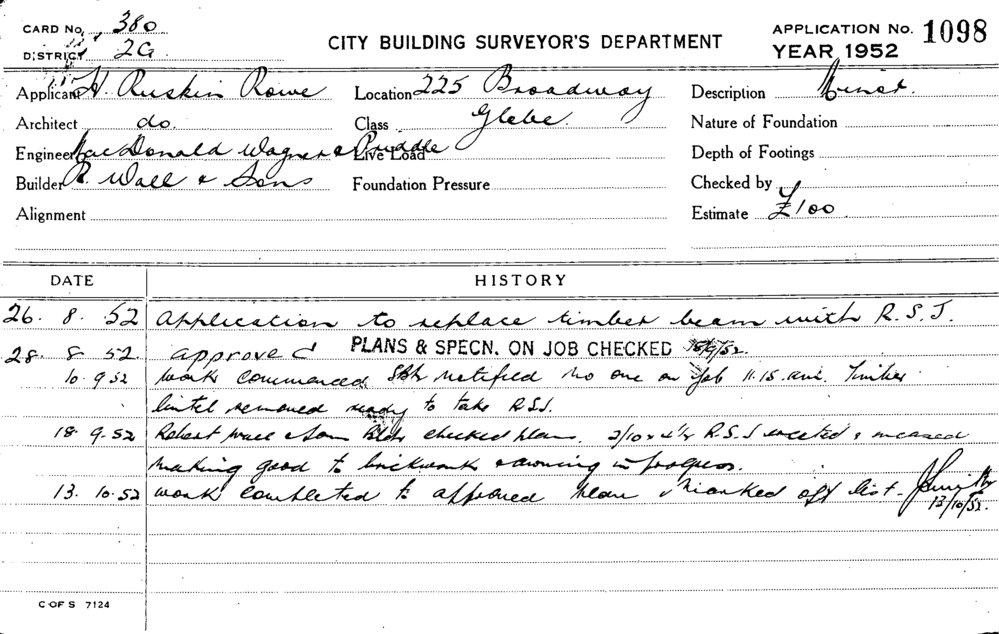 CARD No. 380
DISTRICT 2G
CITY BUILDING SURVEYOR'S DEPARTMENT
APPLICATION No. 1098
YEAR 1952
Applicant H. Ruskin Rowe
Location 225 Broadway
Description Minor.
Architect do.
Class Glebe.
Nature of Foundation
Engineer MacDonald Wagner & Priddle
Live Load
Depth of Footings
Builder R. Wall & Sons
Foundation Pressure
Checked by
Alignment
Estimate £100
DATE HISTORY
26. 8. 52 Application to replace timber beam with R.S.J.
28. 8. 52. approved PLANS & SPECN. ON JOB CHECKED
10. 9. 52 work commenced notified no one on job 11.15 am. Timber
lintel removed ready to take RSJ.
18. 9. 52 Robert Wall & Son Bldr checked plan. R.S.J erected &
making good to brickwork & awning in progress.
13. 10. 52 work completed to approved plan & marked off list.
13/10/52.
C OF S 7124